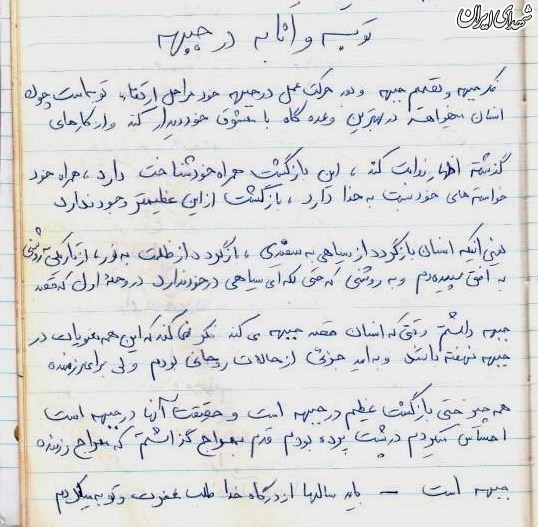 شهدای ایران
توبه و انابه در جبهه
فکر جبهه و تصمیم جبهه و بعد حرکت عمل در جبهه خود مراحل ارتقاء توبه است چون
انسان میخواهد در بهترین وعده گاه با معشوق خود دیدار کند و از کارهای
گذشته اظهار ندامت کند ، این بازگشت همراه خود شناخت دارد ، همراه خود
خواسته های خود نسبت به خدا دارد ، بازگشت از این عظیمتر وجود ندارد
یعنی اینکه انسان بازگردد از سیاهی به سفیدی ، از ظلمت به نور ، از تاریکی به روشنی
به افق سپیده دم و به روشنی که حتی لکه ای سیاهی در خود ندارد در وحلهٔ اول که قصد
جبهه داشتم وقتی که انسان قصد جبهه می کند فکر نمی کند که این همه معنویات در
جبهه نهفته باشد و به امید جزئی از حالات روحانی بودم ولی برای رزمنده
همه چیز حتی بازگشت عظیم در جبهه است و حقیقت آنها در جبهه است
احساس میکردم در پشت پرده بودم قدم بمعراج گذاشتم که معراج رزمنده
جبهه است — باید سالها از درگاه خدا طلب مغفرت و توبه میکردم